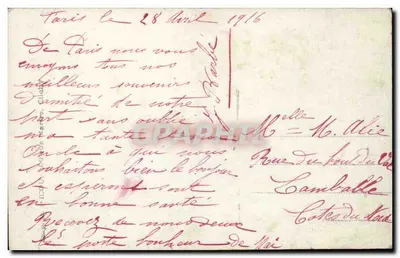 Paris le 28 Avril 1916
De Paris nous vous
envoyons tous nos
meilleurs souvenirs
D'amitié de notre
part sans oublié
ma tante
Oncle à qui nous
souhaitons bien le bonjour
et espérons sont
en bonne santé
Recevez de nous deux
le porte bonheur de Mai
Barbé
Melle = M. Alie
Rue du bout du
Lamballe
Cotes du Nord